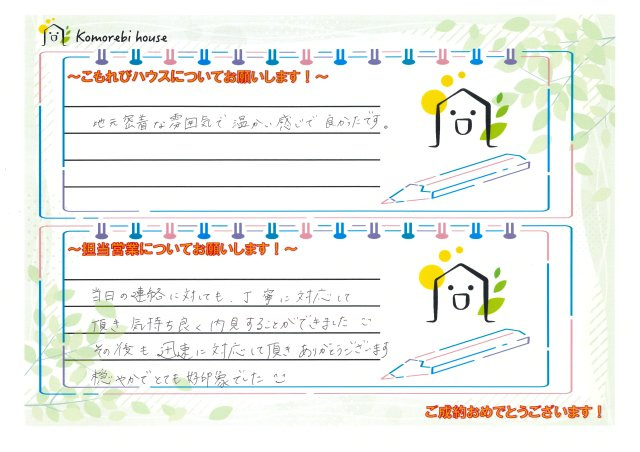 Komorebi house
～こもれびハウスについてお願いします！～
地元密着な雰囲気で温かい感じで良かったです。
～担当営業についてお願いします！～
当日の連絡に対しても、丁寧に対応して
頂き気持ち良く内見することができました
その後も迅速に対応して頂きありがとうございます
穏やかでとても好印象でした
ご成約おめでとうございます！